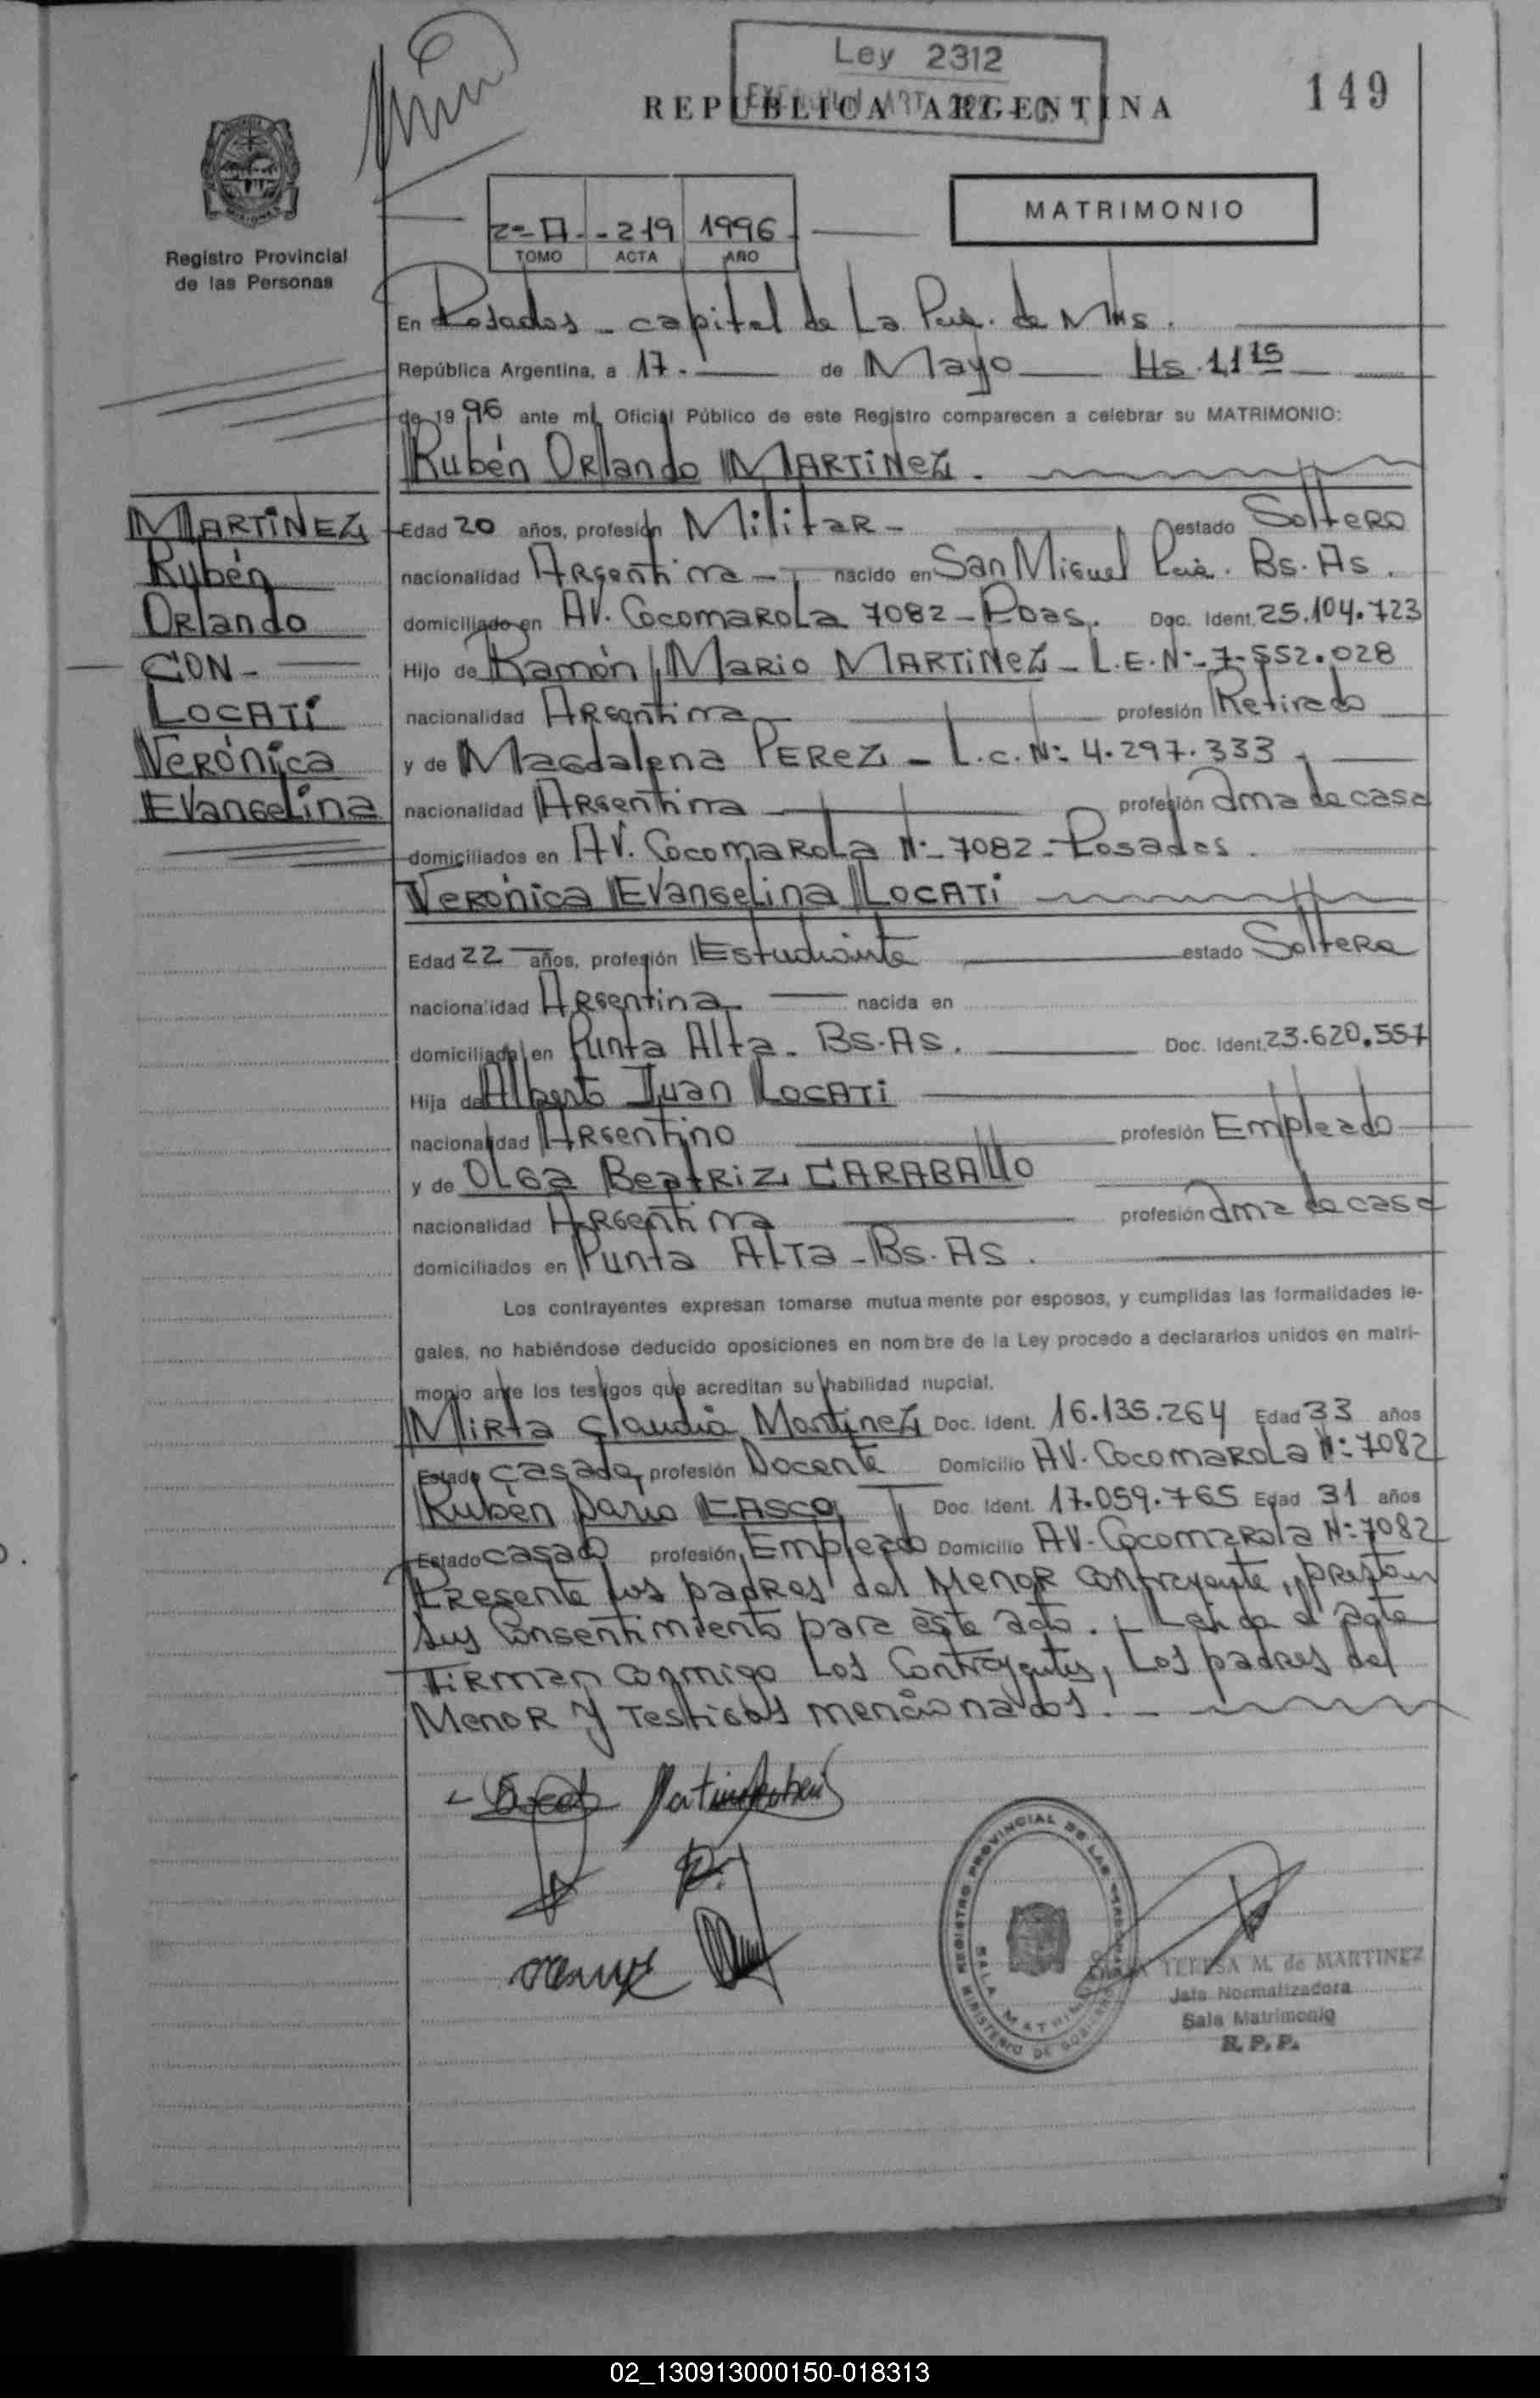 Ley 2312
REPUBLICA ARGENTINA
149
MATRIMONIO
Registro Provincial
de las Personas
2º-A- -219 1996
TOMO ACTA AÑO
En Posadas - capital de La Pcia. de Mnes.
República Argentina, a 17.- de Mayo Hs. 11 15
de 1996 ante mí, Oficial Público de este Registro comparecen a celebrar su MATRIMONIO:
Rubén Orlando MARTINEZ.
MARTINEZ
Rubén
Orlando
CON-
LOCATI
Verónica
Evangelina
Edad 20 años, profesión Militar - estado Soltero
nacionalidad Argentina - nacido en San Miguel Pcia. Bs. As.
domiciliado en AV. Cocomarola 7082 - Pdas. Doc. Ident. 25.104.723
Hijo de Ramón Mario MARTINEZ - L.E.Nº- 7.552.028
nacionalidad Argentina profesión Retirado
y de Magdalena PEREZ - L.C.Nº 4.297.333
nacionalidad Argentina profesión Ama de casa
domiciliados en AV. Cocomarola Nº- 7082 - Posadas.
Verónica Evangelina LOCATI
Edad 22 años, profesión Estudiante estado Soltera
nacionalidad Argentina nacida en
domiciliada en Punta Alta - Bs. As. Doc. Ident. 23.620.557
Hija de Alberto Juan LOCATI
nacionalidad Argentino profesión Empleado
y de Olga Beatriz CARABALLO
nacionalidad Argentina profesión Ama de casa
domiciliados en Punta Alta - Bs. As.
Los contrayentes expresan tomarse mutuamente por esposos, y cumplidas las formalidades le-
gales, no habiéndose deducido oposiciones en nombre de la Ley procedo a declararlos unidos en matri-
monio ante los testigos que acreditan su habilidad nupcial.
Mirta Claudia Martinez Doc. Ident. 16.135.264 Edad 33 años
Estado casada profesión Docente Domicilio AV. Cocomarola Nº 7082
Rubén Dario CASCO Doc. Ident. 17.059.765 Edad 31 años
Estado casado profesión Empleado Domicilio AV. Cocomarola Nº 7082
Presente los padres del Menor contrayente, prestan
sus Consentimiento para éste acto. - Leida el acta
Firman conmigo Los Contrayentes, Los padres del
Menor y Testigos mencionados. -
REGISTRO PROVINCIAL DE LAS PERSONAS
SALA MATRIMONIO
MINISTERIO DE GOBIERNO
TERESA M. de MARTINEZ
Jefa Normalizadora
Sala Matrimonio
R. P. P.
02_130913000150-018313